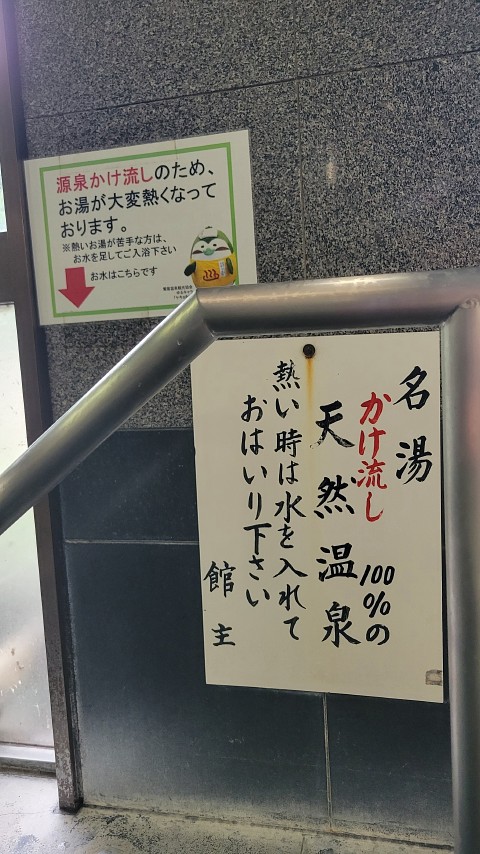 源泉かけ流しのため、
お湯が大変熱くなって
おります。
※熱いお湯が苦手な方は、
お水を足してご入浴下さい
お水はこちらです
名湯
かけ流し100%の
天然温泉
熱い時は水を入れて
おはいり下さい
館主